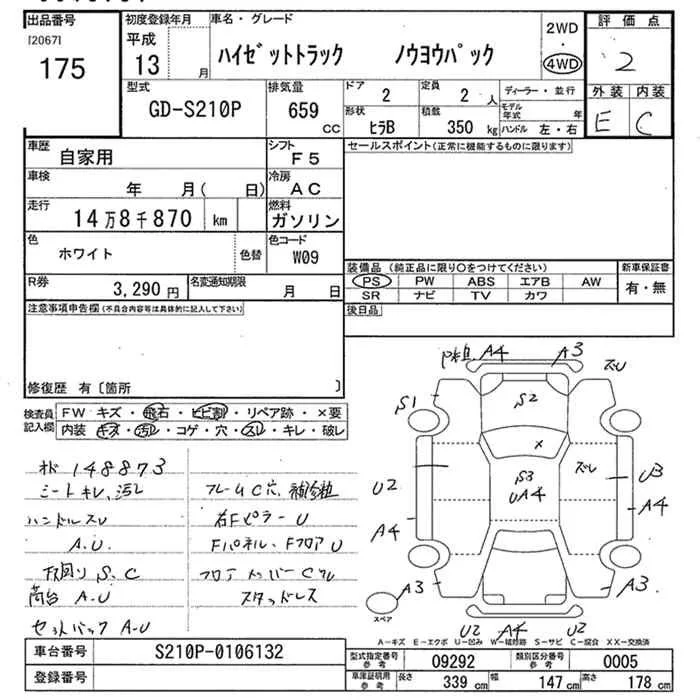 出品番号
[2067]
175
初度登録年月
平成
13 月
車名・グレード
ハイゼットトラック ノウヨウパック
2WD
・
4WD
評価点
2
外装 内装
E C
型式
GD-S210P
排気量
659 CC
ドア
2
定員
2 人
ディーラー・並行
形状
ヒラB
積載
350 kg
モデル年式 年
ハンドル 左・右
車歴
自家用
シフト
F5
車検
年 月( 日)
冷房
AC
走行
14万8千870 km
燃料
ガソリン
色
ホワイト
色替
色コード
W09
R券
3,290 円
名変通知期限
月 日
セールスポイント(正常に機能するものに限ります)
装備品 (純正品に限り○をつけてください)
PS PW ABS エアB AW
SR ナビ TV カワ
新車保証書
有・無
後日品
注意事項申告欄(不具合内容等は具体的に記入して下さい)
修復歴 有〔箇所 〕
検査員記入欄
FW キズ・飛石・ヒビ割・リペア跡・×要
内装 キズ・汚レ・コゲ・穴・スレ・キレ・破レ
148873
シートキレ、汚レ
ハンドルスレ
A.U
下回りS.C
荷台 A-U
A-U
フレームC穴
右FピラーU
Fパネル、FフロアU
スタッドレス
A4 A3
S1
S2
×
S3
UA4
U2
U3
A4
A4
A3
A3
U2 A4 U2
スペア
A-キズ E-エクボ U-凹み W-補修跡 S-サビ C-腐食 XX-交換済
車台番号
S210P-0106132
登録番号
型式指定番号 参考
09292
類別区分番号 参考
0005
車庫証明用 参考
長さ 339 cm 幅 147 cm 高さ 178 cm